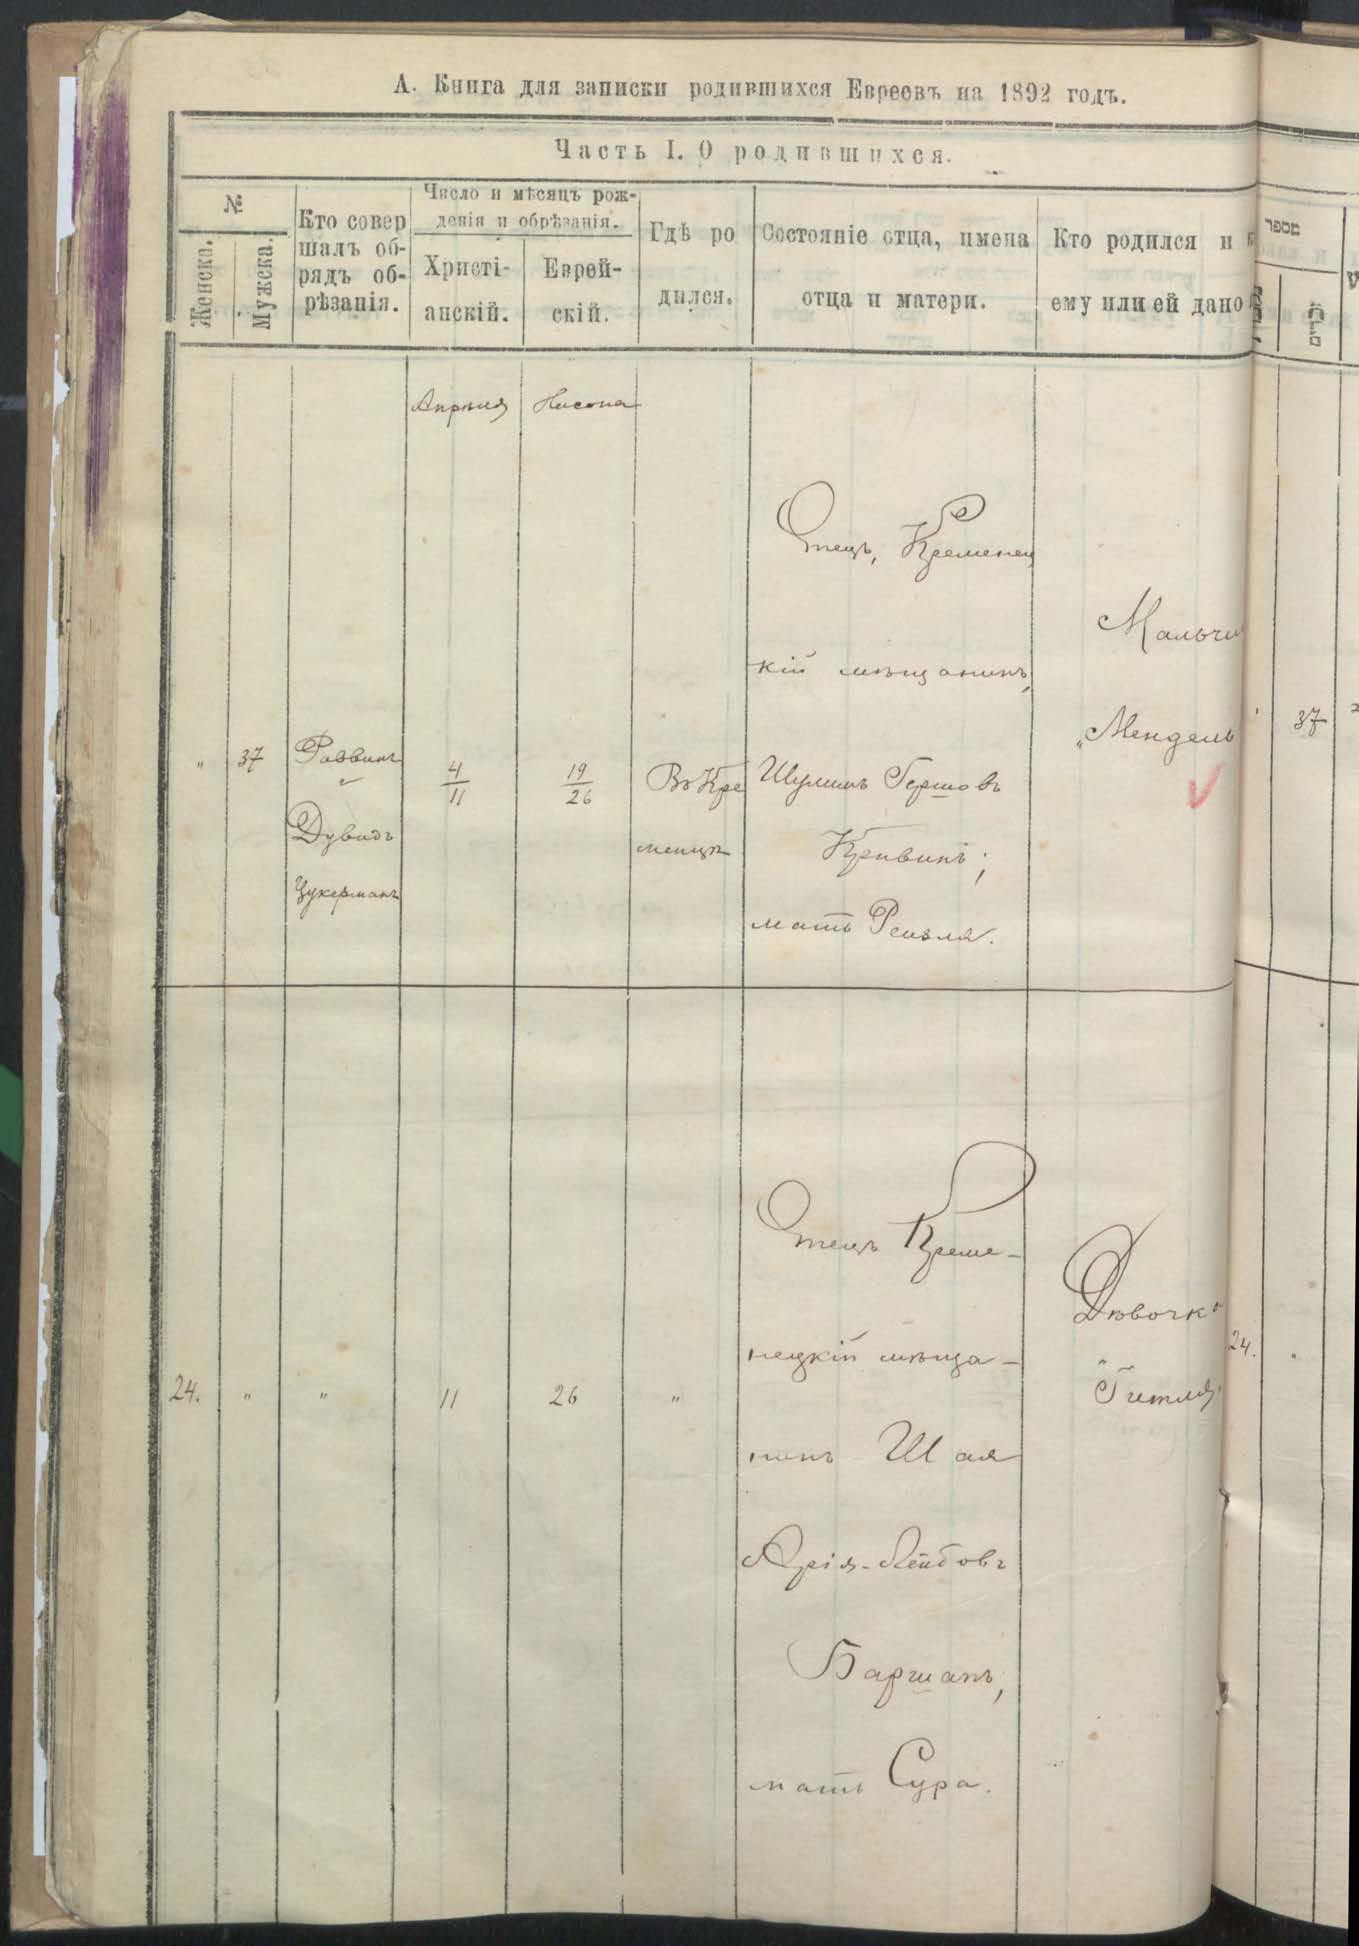 А. Книга для записки родившихся Евреевъ на 1892 годъ.
Часть I. О родившихся.
№
Женска.
Мужска.
Кто совер
шалъ об-
рядъ об-
рѣзанія.
Число и мѣсяцъ рож-
денія и обрѣзанія.
Христі-
анскій.
Еврей-
скій.
Гдѣ ро
дился.
Состояніе отца, имена
отца и матери.
Кто родился и к
ему или ей дано
מספר
זכרים
Апрѣля
Нисона
"
37
Раввинъ
Дувидъ
Цукерманъ
4
11
19
26
Въ Кре
менцѣ
Отецъ, Кременец
кій мѣщанинъ,
Шулимъ Гершовъ
Кривинъ;
мать Рейзля.
Мальчи
"Мендель
37
24.
"
"
11
26
"
Отецъ Креме-
нецкій мѣща-
нинъ Шая
Арія-Лейбовъ
Баршапъ,
мать Сура.
Дѣвочка
"Гитля"
24.
"